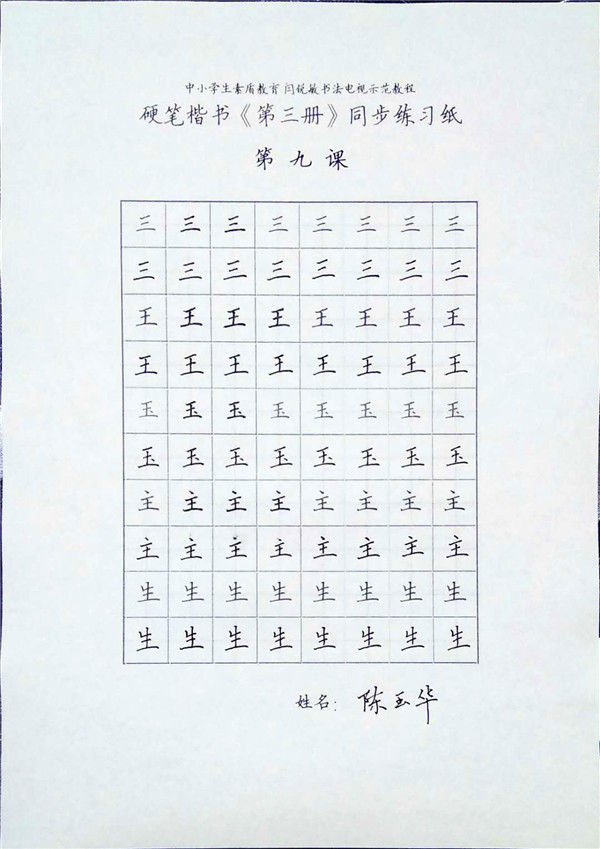 中小学生素质教育闫锐敏书法电视示范教程
硬笔楷书《第三册》同步练习纸
第九课
三三三三三三三三
三三三三三三三三
王王王王王王王王
王王王王王王王王
玉玉玉玉玉玉玉玉
玉玉玉玉玉玉玉玉
主主主主主主主主
主主主主主主主主
生生生生生生生生
生生生生生生生生
姓名：陈玉华